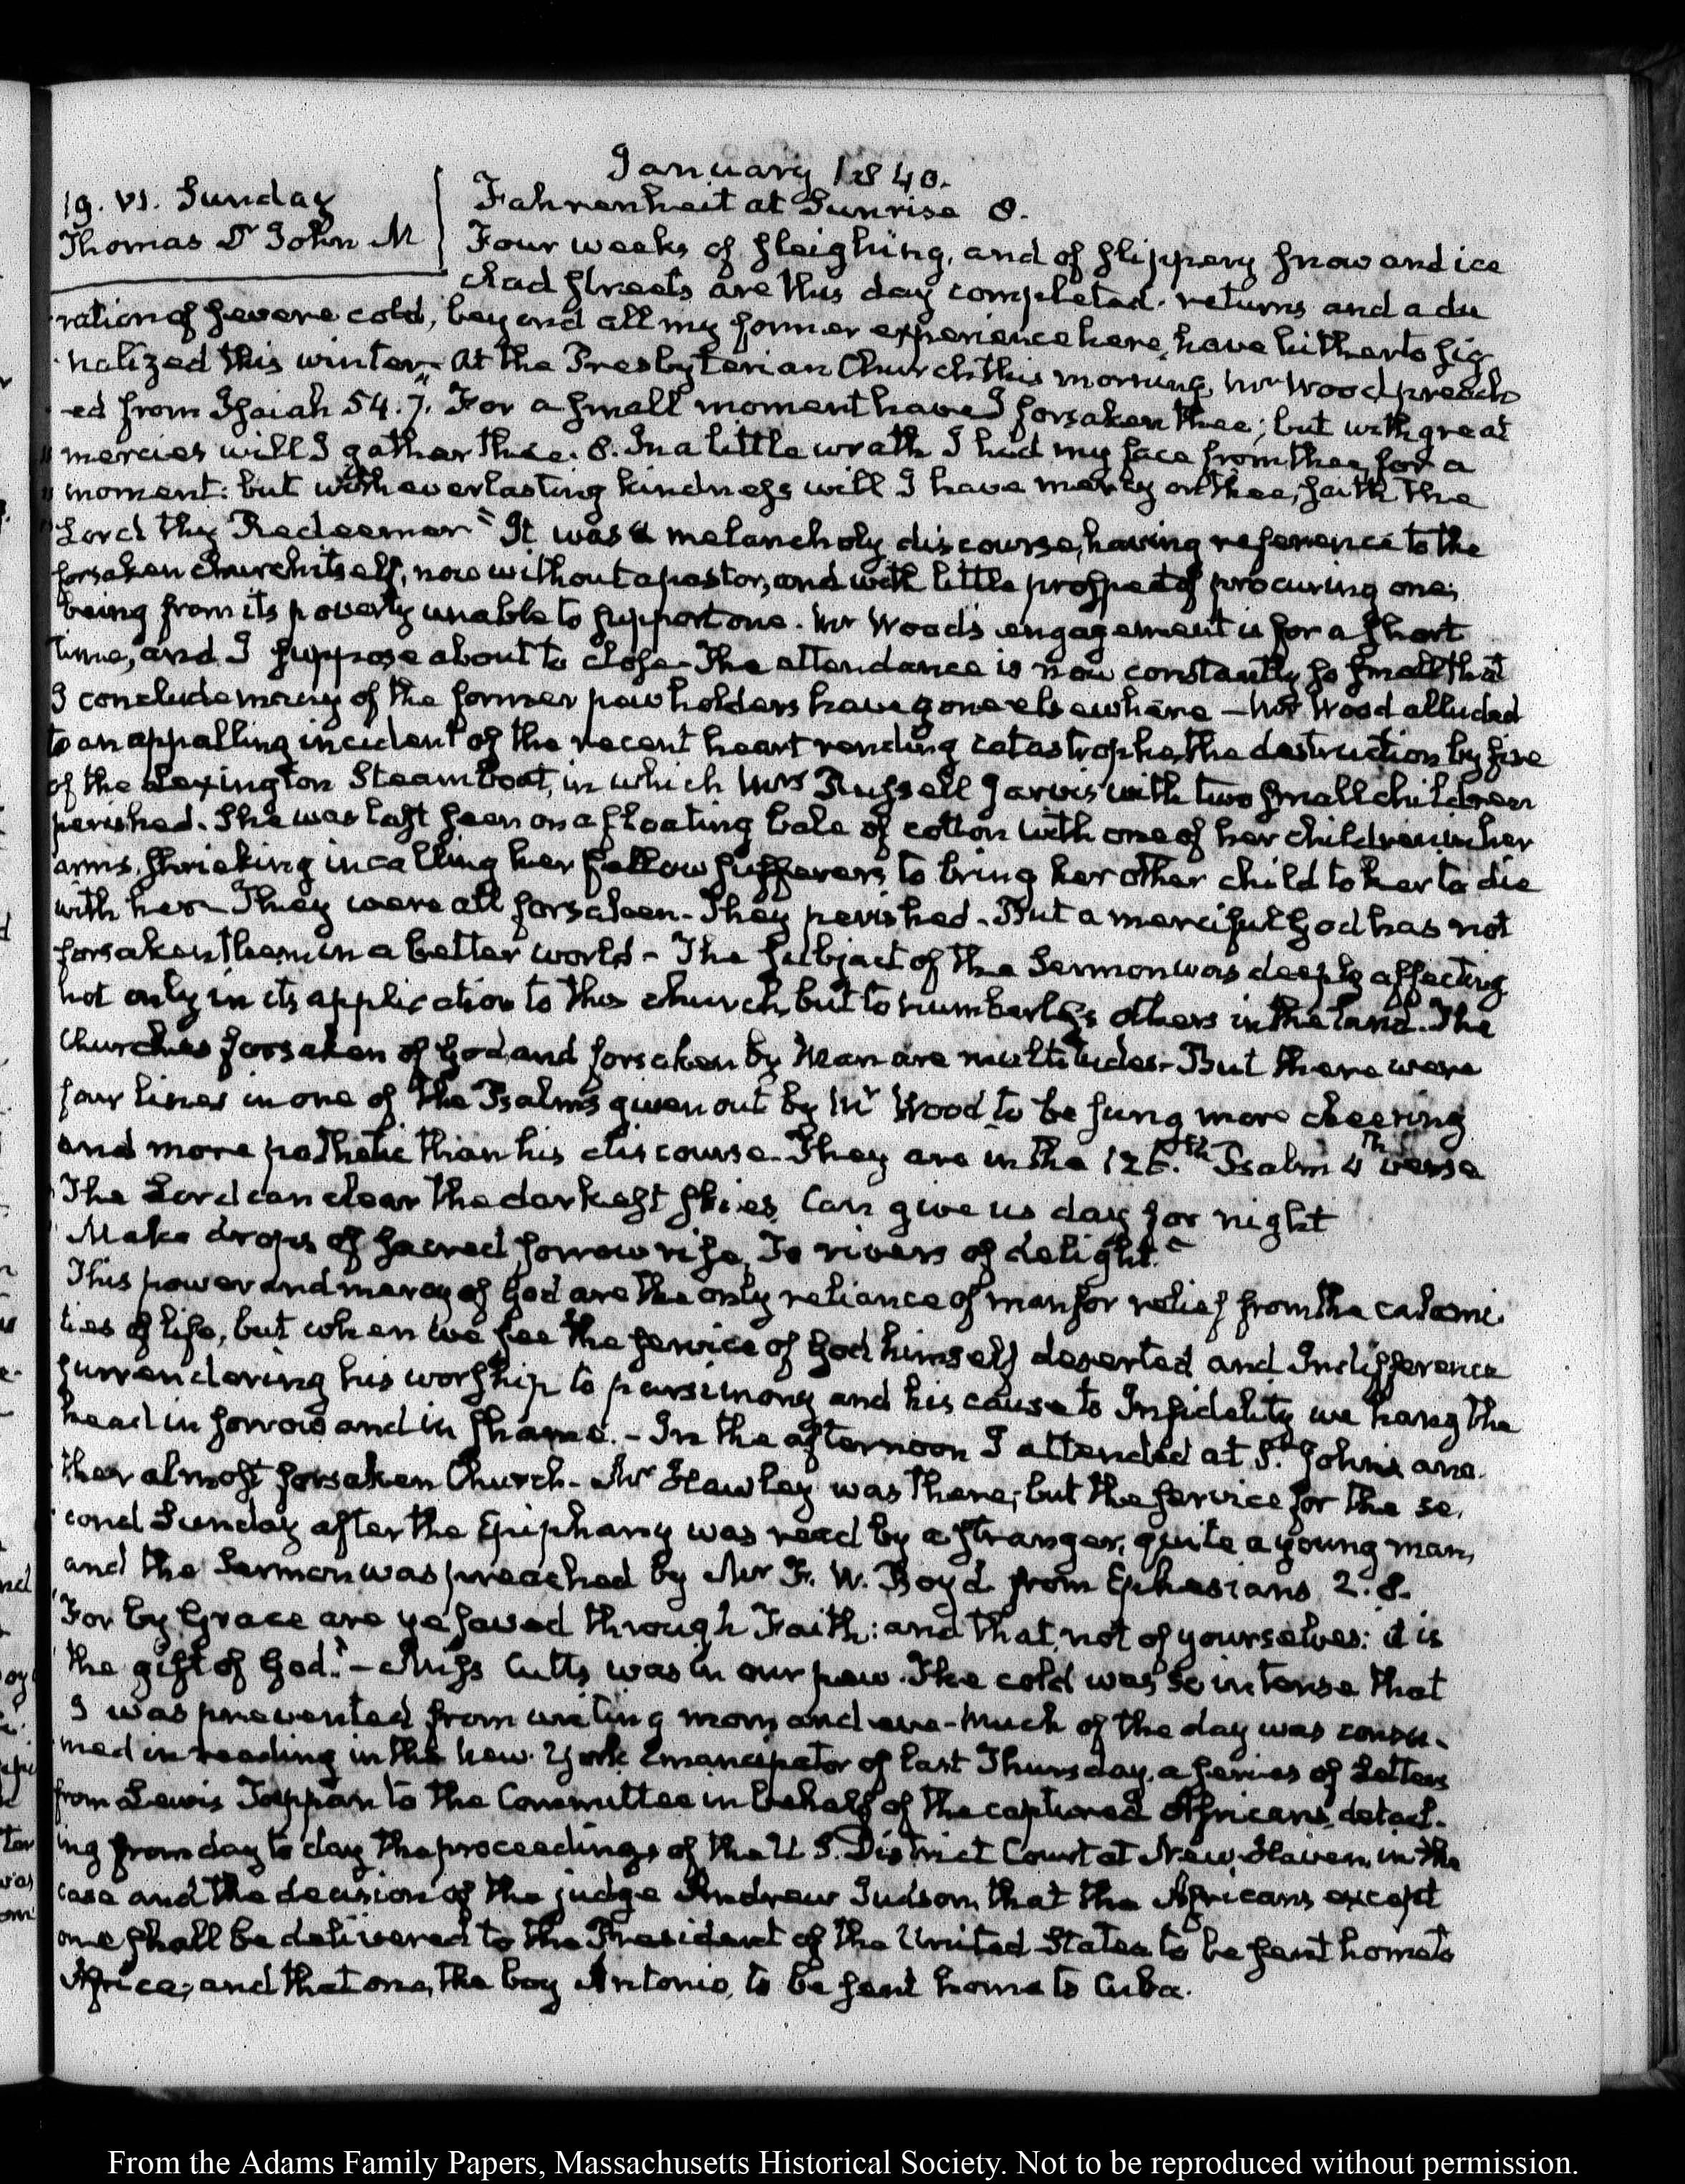 January 1840.
19. VI. Sunday
Thomas Dr John M
Fahrenheit at Sunrise 8.
Four weeks of sleighing, and of slippery snow and ice
clad streets are this day completed. returns and a du
ration of severe cold, beyond all my former experience here, have hitherto sig
nalized this winter. At the Presbyterian Church this morning, Mr Wood preach
-ed from Isaiah 54.7. "For a small moment have I forsaken thee; but with great
" mercies will I gather thee. 8. In a little wrath I hid my face from thee, for a
" moment: but with everlasting kindness will I have mercy on thee, saith the
" Lord thy Redeemer" It was a melancholy discourse, having reference to the
forsaken Church itself, now without a pastor, and with little prospect of procuring one;
being from its poverty unable to support one. Mr Wood's engagement is for a short
time, and I suppose about to close. The attendance is now constantly so small that
I conclude many of the former pew holders have gone elsewhere — Mr Wood alluded
to an appalling incident of the recent heart rending catastrophe, the destruction by fire
of the Lexington Steam boat, in which Mrs Russell Jarvis with two small children
perished. She was last seen on a floating bale of cotton with one of her children in her
arms, shrieking in calling her fellow sufferers to bring her other child to her to die
with her - They were all forsaken - They perished - But a merciful God has not
forsaken them in a better world - The subject of the Sermon was deeply affecting
not only in its application to this church, but to numberless others in the land. The
Churches forsaken of God and forsaken by Man are multitudes - But there were
four lines in one of the Psalms given out by Mr Wood to be sung more cheering
and more pathetic than his discourse. They are in the 126.th Psalm 4th verse
'The Lord can clear the darkest skies, Can give us day for night
'Make drops of sacred sorrow rise, To rivers of delight."
This power and mercy of God are the only reliance of man for relief from the calami
ties of life, but when we see the service of God himself deserted and Indifference
surrendering his worship to parsimony and his cause to Infidelity we hang the
head in sorrow and in shame. - In the afternoon I attended at St. John's ano-
ther almost forsaken Church - Mr Hawley was there, but the service for the se,
cond Sunday after the Epiphany was read by a stranger, quite a young man,
and the Sermon was preached by Mr F. W. Boyd from Ephesians 2.8.
'For by Grace are ye saved through Faith: and that not of yourselves: it is
'the gift of God." - Miss Cutts was in our pew. The cold was so intense that
I was prevented from writing morn and eve - Much of the day was consu-
med in reading in the New-York Emancipator of last Thursday, a series of Letters
from Lewis Tappan to the Committee in behalf of the captured Africans, detail-
ing from day to day the proceedings of the U. S. District Court at New Haven, in the
case and the decision of the judge Andrew Judson, that the Africans except
one shall be delivered to the President of the United States to be sent home to
Africa; and that one, the boy Antonio, to be sent home to Cuba.
From the Adams Family Papers, Massachusetts Historical Society. Not to be reproduced without permission.